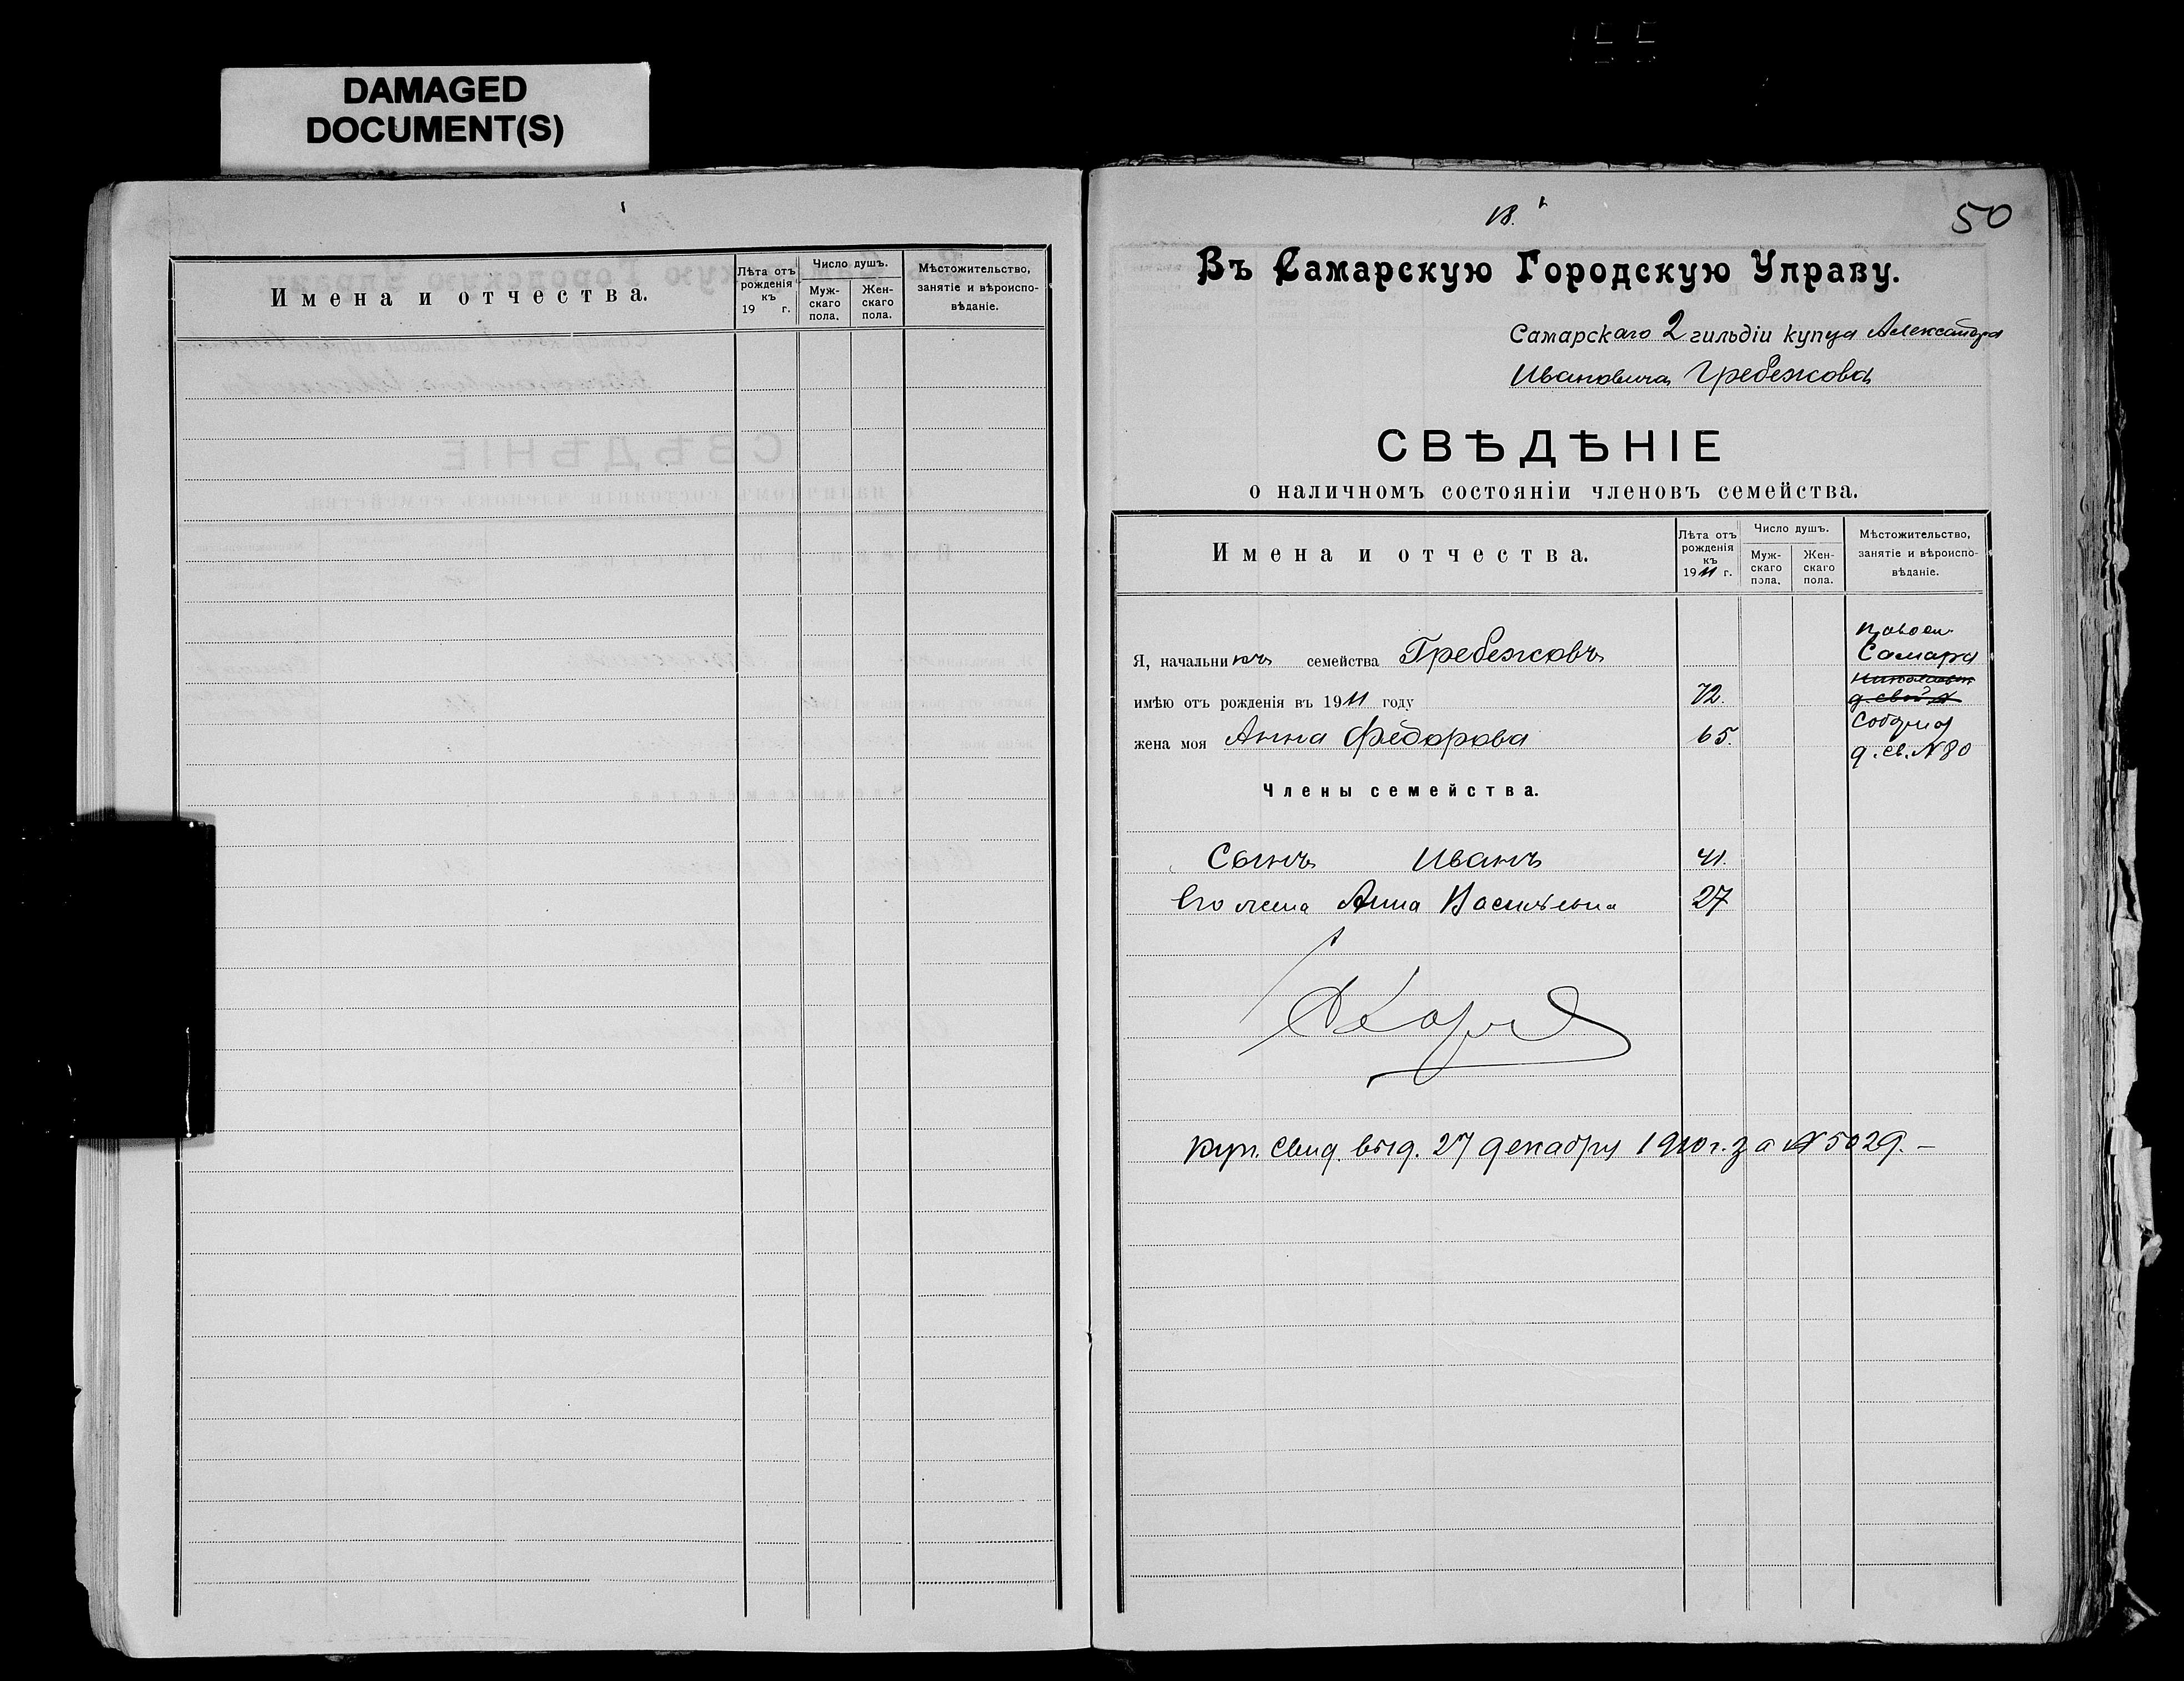 DAMAGED
DOCUMENT(S)
Имена и отчества.
Лѣта отъ рожденія къ 19 г.
Число душъ.
Мужскаго пола.
Женскаго пола.
Мѣстожительство, занятіе и вѣроисповѣданіе.
18.
50
Въ Самарскую Городскую Управу.
Самарскаго 2 гильдіи купца Александра
Ивановича Гребежова
СВѢДѢНІЕ
о наличномъ состояніи членовъ семейства.
Имена и отчества.
Лѣта отъ рожденія къ 1911 г.
Число душъ.
Мужскаго пола.
Женскаго пола.
Мѣстожительство, занятіе и вѣроисповѣданіе.
Я, начальникъ семейства Гребежовъ
Самара
имѣю отъ рожденія въ 1911 году 72.
жена моя Анна Федорова 65.
д. св. № 80
Члены семейства.
Сынъ Иванъ 41.
Его жена Анна Васильевна 27
Куп. свид. выд. 27 декабря 1910 г. за № 5029.–